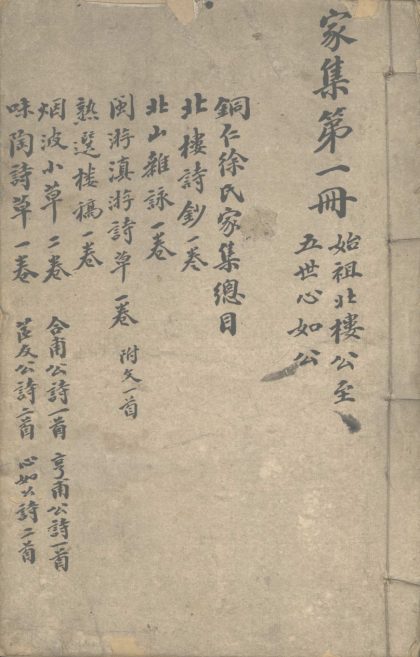 家集第一冊
始祖北樓公至
五世心如公
銅仁徐氏家集總目
北樓詩鈔一卷
北山雜詠一卷
閩游滇游詩草一卷 附文一首
熟選楼稿一卷
烟波小草二卷 合甫公詩一首 亨甫公詩一首
味陶詩草一卷 友公詩六首 心如公詩二首